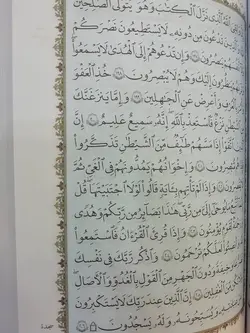 ٱللَّهُ ٱلَّذِى نَزَّلَ ٱلْكِتَٰبَ وَهُوَ يَتَوَلَّى ٱلصَّٰلِحِينَ
تَدْعُونَ مِن دُونِهِۦ لَا يَسْتَطِيعُونَ نَصْرَكُمْ
يَنصُرُونَ ١٩٧ وَإِن تَدْعُوهُمْ إِلَى ٱلْهُدَىٰ لَا يَسْمَعُوا۟
يَنظُرُونَ إِلَيْكَ وَهُمْ لَا يُبْصِرُونَ ١٩٨ خُذِ ٱلْعَفْوَ
وَأَعْرِضْ عَنِ ٱلْجَٰهِلِينَ ١٩٩ وَإِمَّا يَنزَغَنَّكَ
نَزْغٌ فَٱسْتَعِذْ بِٱللَّهِ إِنَّهُۥ سَمِيعٌ عَلِيمٌ ٢٠٠ إِنَّ
إِذَا مَسَّهُمْ طَٰٓئِفٌ مِّنَ ٱلشَّيْطَٰنِ تَذَكَّرُوا۟
مُّبْصِرُونَ ٢٠١ وَإِخْوَٰنُهُمْ يَمُدُّونَهُمْ فِى ٱلْغَىِّ ثُمَّ
٢٠٢ وَإِذَا لَمْ تَأْتِهِم بِـَٔايَةٍ قَالُوا۟ لَوْلَا ٱجْتَبَيْتَهَا قُلْ
مَا يُوحَىٰٓ إِلَىَّ مِن رَّبِّى هَٰذَا بَصَآئِرُ مِن رَّبِّكُمْ وَهُدًى
لِّقَوْمٍ يُؤْمِنُونَ ٢٠٣ وَإِذَا قُرِئَ ٱلْقُرْءَانُ فَٱسْتَمِعُوا۟
لَعَلَّكُمْ تُرْحَمُونَ ٢٠٤ وَٱذْكُر رَّبَّكَ فِى نَفْسِكَ
وَخِيفَةً وَدُونَ ٱلْجَهْرِ مِنَ ٱلْقَوْلِ بِٱلْغُدُوِّ وَٱلْءَاصَالِ
مِّنَ ٱلْغَٰفِلِينَ ٢٠٥ إِنَّ ٱلَّذِينَ عِندَ رَبِّكَ لَا يَسْتَكْبِرُونَ
وَيُسَبِّحُونَهُۥ وَلَهُۥ يَسْجُدُونَ ۩ ٢٠٦
سجدة